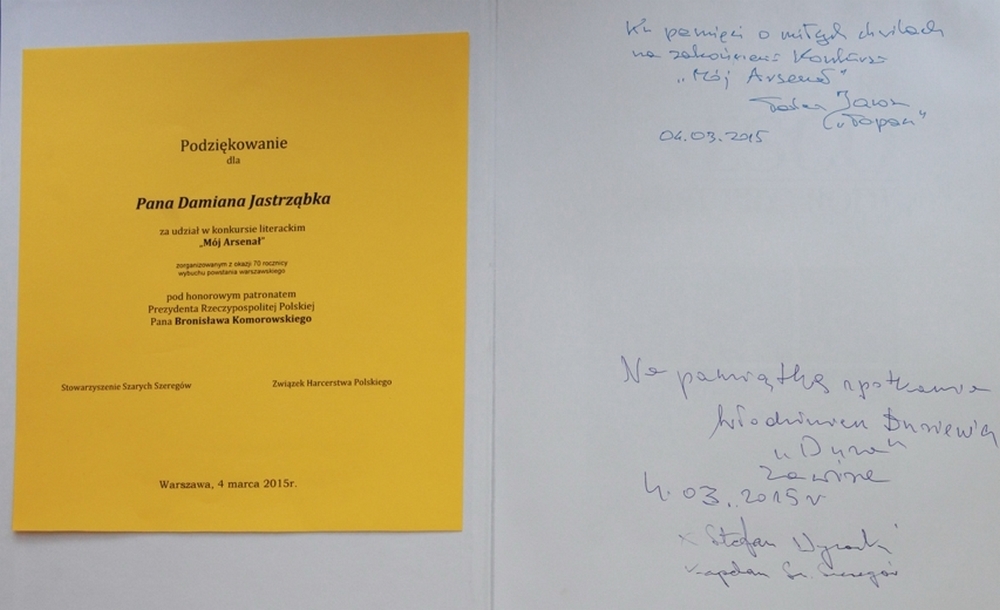 Podziękowanie
dla
Pana Damiana Jastrząbka
za udział w konkursie literackim
„Mój Arsenał”
zorganizowanym z okazji 70 rocznicy
wybuchu powstania warszawskiego
pod honorowym patronatem
Prezydenta Rzeczypospolitej Polskiej
Pana Bronisława Komorowskiego
Stowarzyszenie Szarych Szeregów
Związek Harcerstwa Polskiego
Warszawa, 4 marca 2015r.
Ku pamięci o miłych chwilach
na zakończenie Konkursu
„Mój Arsenał”
04.03.2015
Na pamiątkę spotkania
Włodzimierz
4.03.2015 r
Stefan